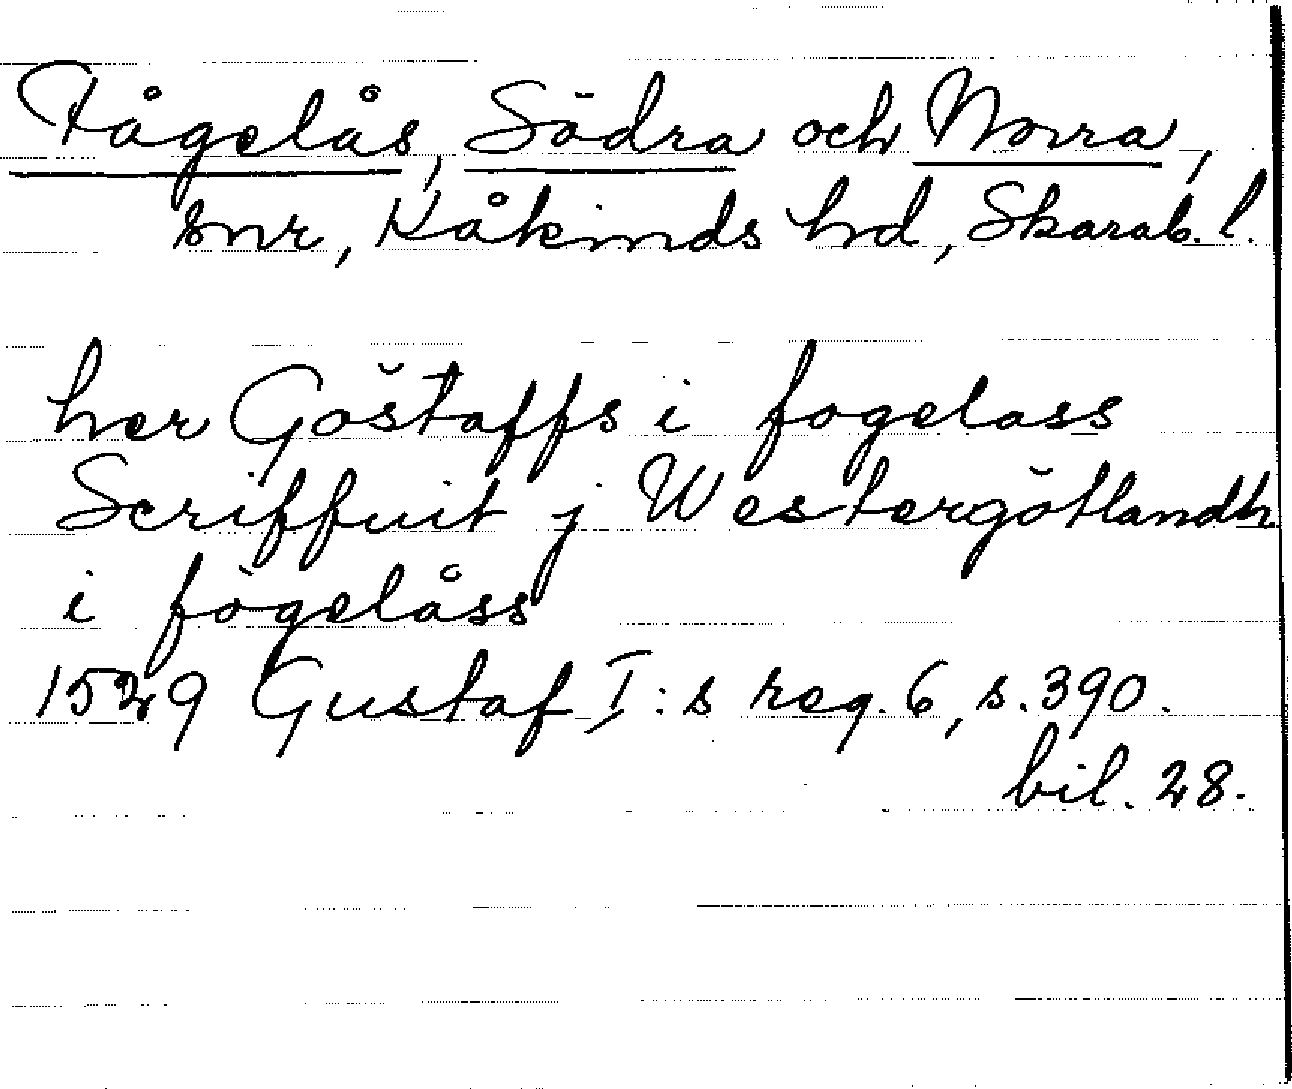 Fågelås, Södra och Norra,
snr, Kåkinds hd, Skarab. l.
her Göstaffs i fogelass
Scriffuit j Westergötlandh
i fögelåss
1529 Gustaf I:s reg. 6, s. 390.
bil. 28.